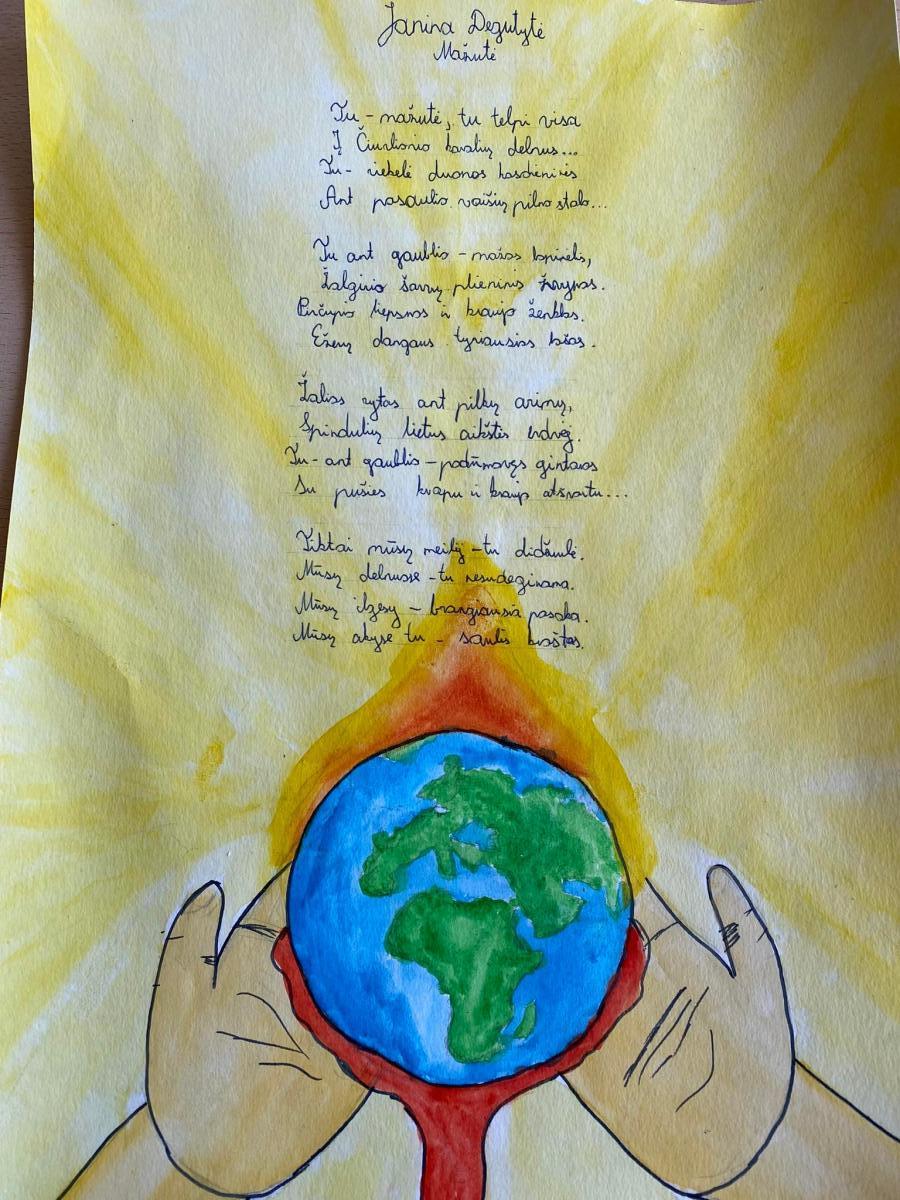 Janina Degutytė
Mažutė
Tu - mažutė, tu telpi visa
Į Čiurlionio karalių delnus...
Tu - riekelė duonos kasdieninės
Ant pasaulio vaišių pilno stalo...
Tu ant gaublio - mažas lopinėlis,
Žalgirio šarvų plieninis žvynas.
Pirčiupio liepsnos ir kraujo ženklas.
Ežerų dangaus tyriausias lašas.
Žalias rytas ant pilkų arimų,
Spindulių lietus aikštės erdvėj.
Tu - ant gaublio - padūmavęs gintaras
Su pušies kvapu ir kraujo atšvaitu...
Tiktai mūsų meilėj - tu didžiulė.
Mūsų delnuose - tu nesudeginama.
Mūsų ilgesy - brangiausia pasaka.
Mūsų akyse tu - saulės kraštas.